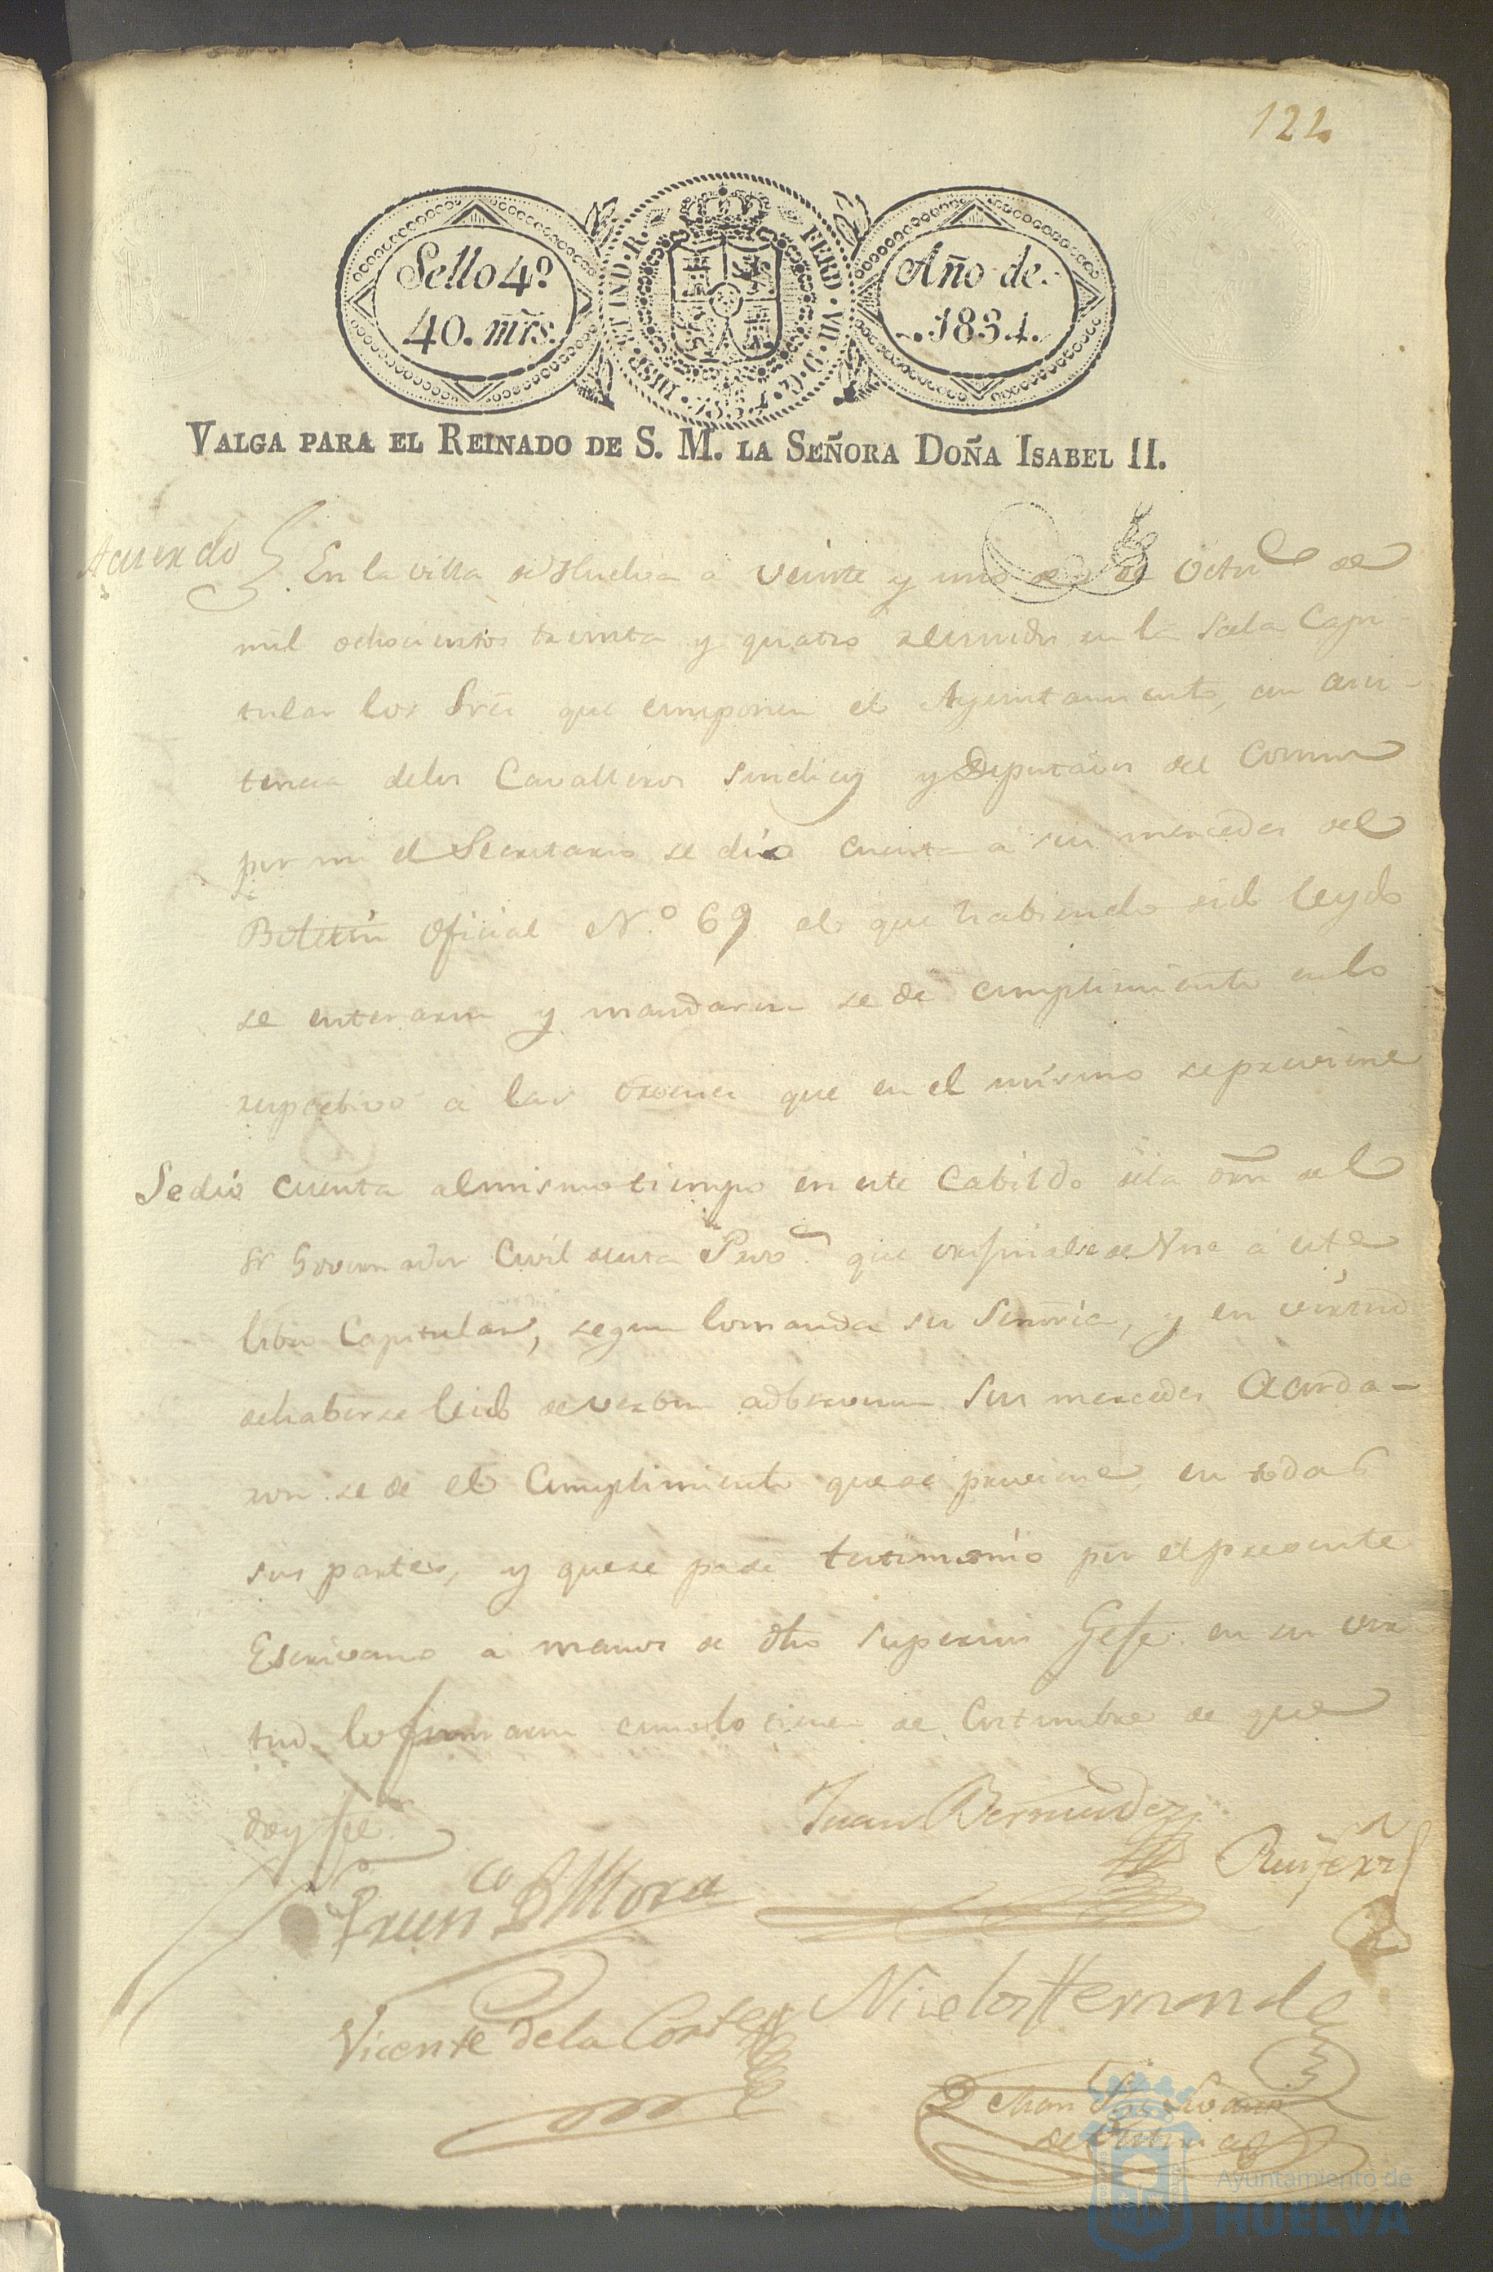 122
Sello 4º
40. mrs.
HISP. ET IND. R. FERD. VII. D. G. 1834.
Año de
1834.
VALGA PARA EL REINADO DE S. M. LA SEÑORA DOÑA ISABEL II.
Acuerdo
En la villa de Huelva a veinte y uno de Octue de
mil ochocientos treinta y quatro reunidos en la Sala Capi
tular los Sres que componen el Ayuntamiento, con asis-
tencia delos Cavalleros Sindicos y Diputados del Comun
por mi el Secretario se dio cuenta a sus mercedes del
Boletin Oficial Nº 69 el que habiendo sido leydo
se enteraron y mandaron se de cumplimiento enlo
respectivo a las ordenes que en el mismo sepreviene
Sedio cuenta almismo tiempo en este Cabildo dela orn del
Sr Governador Civil desta Prova que original se une a este
libro Capitular, segun lomanda su Señoria, y en virtud
dehaberse leido de verbum adberbum sus mercedes Acorda-
ron se de el Cumplimiento quese previene, en todas
sus partes, y quese pase testimonio por el presente
Escrivano a manos de dho superior Gefe en su vir
tud lo firmaron comolo tienen de Costumbre de que
doy fee
Juan Bermudez
Franco D Mora
Ruifernz
Vicente dela Corte
Nicolas Hernande
Ayuntamiento de
HUELVA